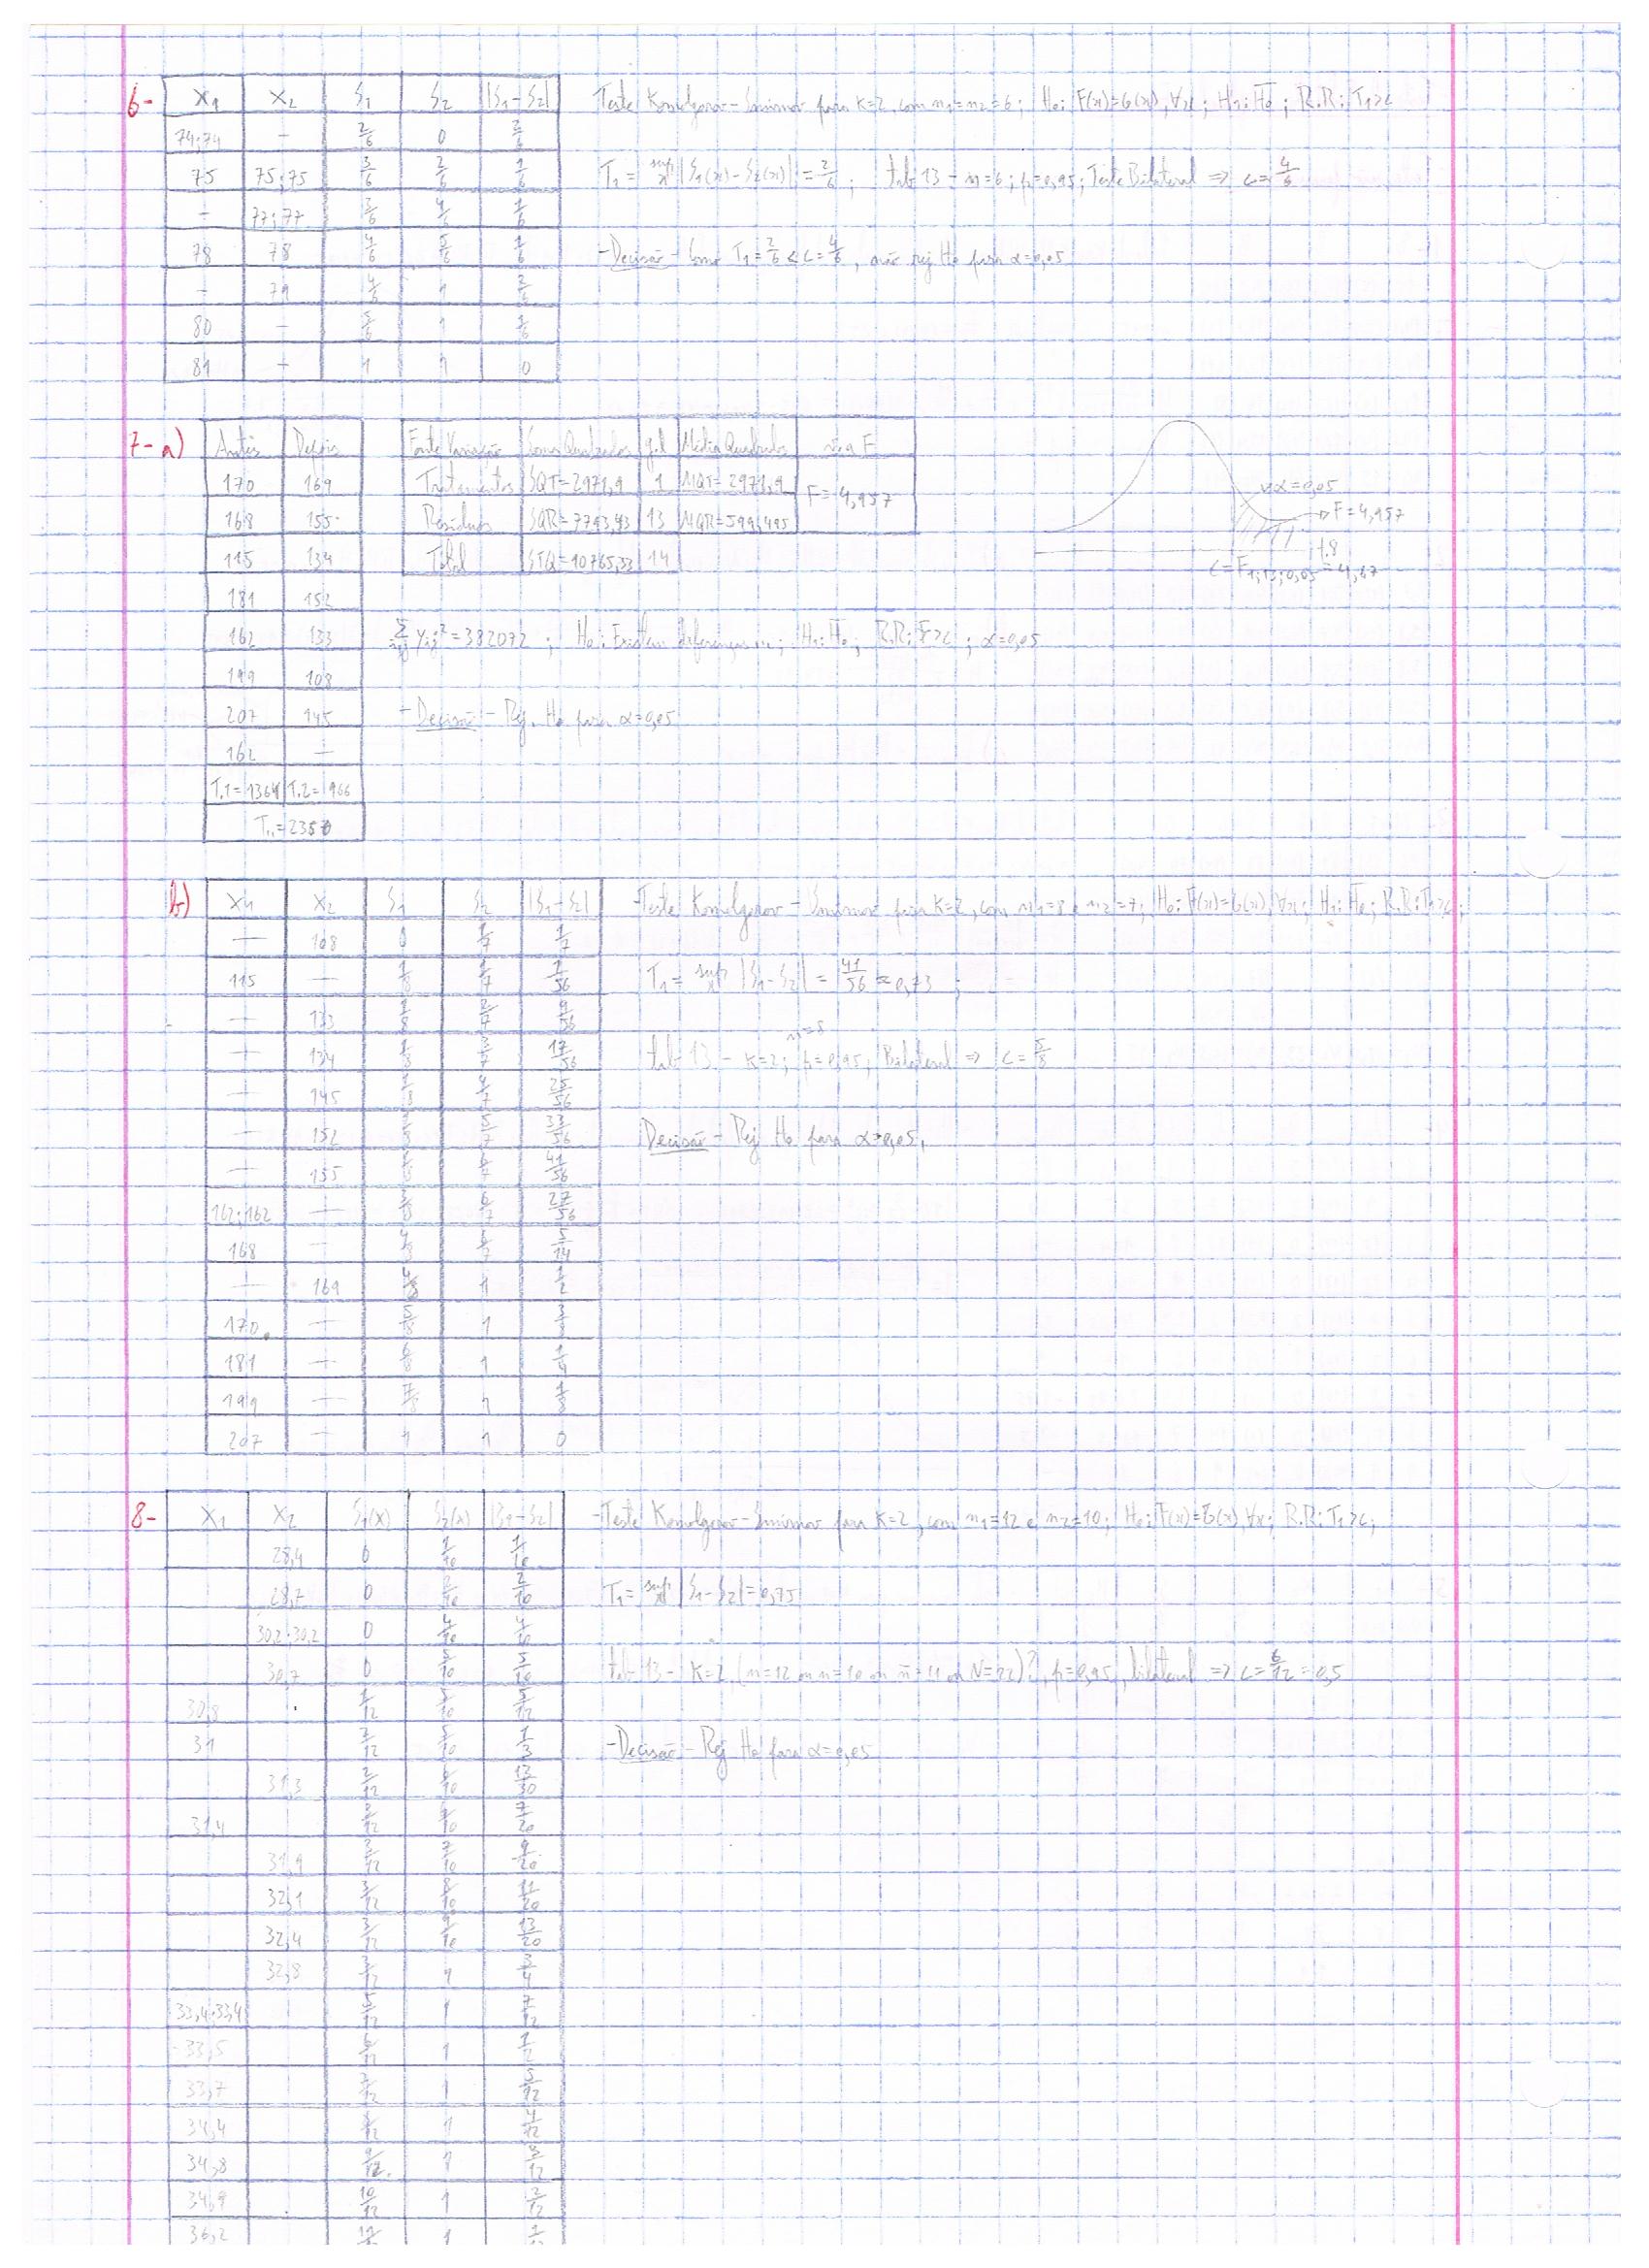 6-
X1 X2 S1 S2 |S1-S2|
74;74 - 2/6 0 2/6
75 75;75 3/6 2/6 1/6
- 77;77 3/6 4/6 1/6
78 78 4/6 5/6 1/6
- 79 4/6 1 2/6
80 - 5/6 1 1/6
81 - 1 1 0
Teste Komolgorov-Smirnov para K=2, com n1=n2=6; H0: F(x)=G(x), ∀x; H1: H̄0; R.R: T1>c
T1= sup x |S1(x)-S2(x)| = 2/6; tab 13 - n=6; p=0,95; Teste Bilateral ⇒ c=4/6
-Decisão- Como T1=2/6 < c=4/6, não rej H0 para α=0,05
7-a)
Antes Depois
170 169
168 155
115 134
181 152
162 133
199 108
207 145
162 -
T.1=1364 T.2=966
T..=2350
Fonte Variação Soma Quadrados g.l Média Quadrados F
Tratamentos SQT=2971,9 1 MQT=2971,9 F=4,957
Resíduos SQR=7793,43 13 MQR=599,495
Total STQ=10765,33 14
α=0,05
F=4,957
c=F1;13;0,05=4,67
Σ yij²=382072; H0: Existem diferenças; H1: H̄0; R.R: F>c; α=0,05
-Decisão- Rej. H0 para α=0,05
b)
X1 X2 S1 S2 |S1-S2|
- 108 0 1/7 1/7
115 - 1/8 1/7 1/56
- 133 1/8 2/7 9/56
- 134 1/8 3/7 17/56
- 145 1/8 4/7 25/56
- 152 1/8 5/7 33/56
- 155 1/8 6/7 41/56
162;162 - 3/8 6/7 27/56
168 - 4/8 6/7 5/14
- 169 4/8 1 1/2
170 - 5/8 1 3/8
181 - 6/8 1 1/4
199 - 7/8 1 1/8
207 - 1 1 0
-Teste Komolgorov-Smirnov para K=2, com n1=8 e n2=7; H0: F(x)=G(x), ∀x; H1: H̄0; R.R: T1>c;
T1= sup x |S1-S2| = 41/56 ≈ 0,73;
tab 13 - K=2; p=0,95; Bilateral ⇒ c=5/8
Decisão- Rej H0 para α=0,05,
8-
X1 X2 S1(x) S2(x) |S1-S2|
28,4 0 1/10 1/10
28,7 0 2/10 2/10
30,2;30,2 0 4/10 4/10
30,7 0 5/10 5/10
30,8 1/12 5/10 5/12
31 2/12 5/10 1/3
31,3 2/12 6/10 13/30
31,4 3/12 6/10 7/20
31,9 3/12 7/10 9/20
32,1 3/12 8/10 11/20
32,4 3/12 9/10 13/20
32,8 3/12 1 3/4
33,4;33,4 5/12 1 7/12
33,5 6/12 1 1/2
33,7 7/12 1 5/12
34,4 8/12 1 4/12
34,8 9/12 1 3/12
34,9 10/12 1 2/12
36,2 11/ 1 1
-Teste Komolgorov-Smirnov para K=2, com n1=12 e n2=10; H0: F(x)=G(x), ∀x; R.R: T1>c;
T1= sup x |S1-S2|=0,75
tab 13- K=2, (n=12 ou n=10 ou n̄=11 ou N=22)?, p=0,95, bilateral ⇒ c=6/12=0,5
-Decisão- Rej H0 para α=0,05